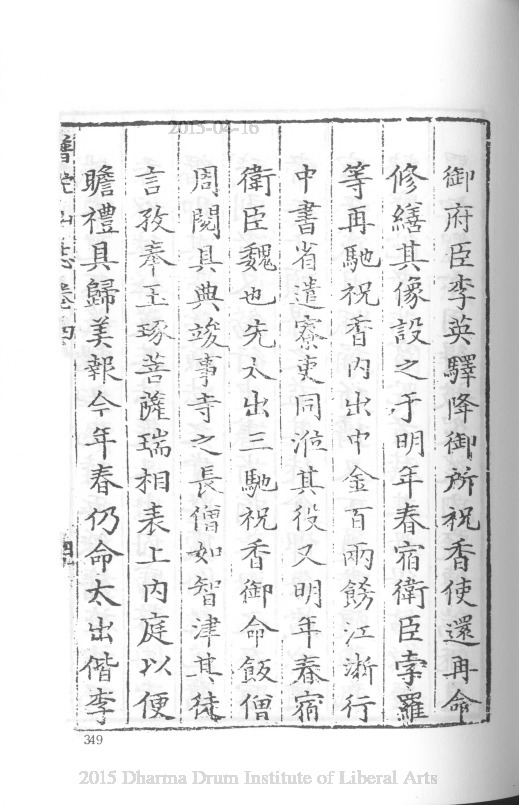 2015-04-16
御府臣李英驛降御所祝香使還再命
修繕其像設之于明年春宿衛臣孛羅
等再馳祝香内出中金百兩餝江淛行
中書省遣寮吏同涖其役又明年春宿
衛臣魏也先太出三馳祝香御命飯僧
周閱具典竣事寺之長僧如智津其徒
言孜奉玉琢菩薩瑞相表上内庭以便
瞻禮具歸美報今年春仍命太出偕李
山志卷四
349
2015 Dharma Drum Institute of Liberal Arts